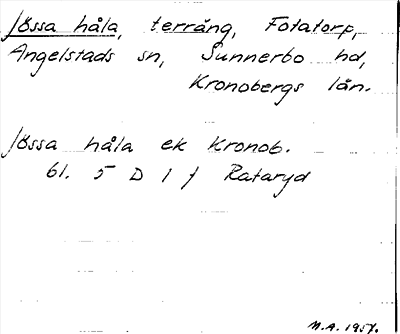 Jössa håla, terräng, Fotatorp,
Angelstads sn, Sunnerbo hd,
Kronobergs län.
Jössa håla ek Kronob.
bl. 5 D 1 f Rataryd
M.A. 1957.